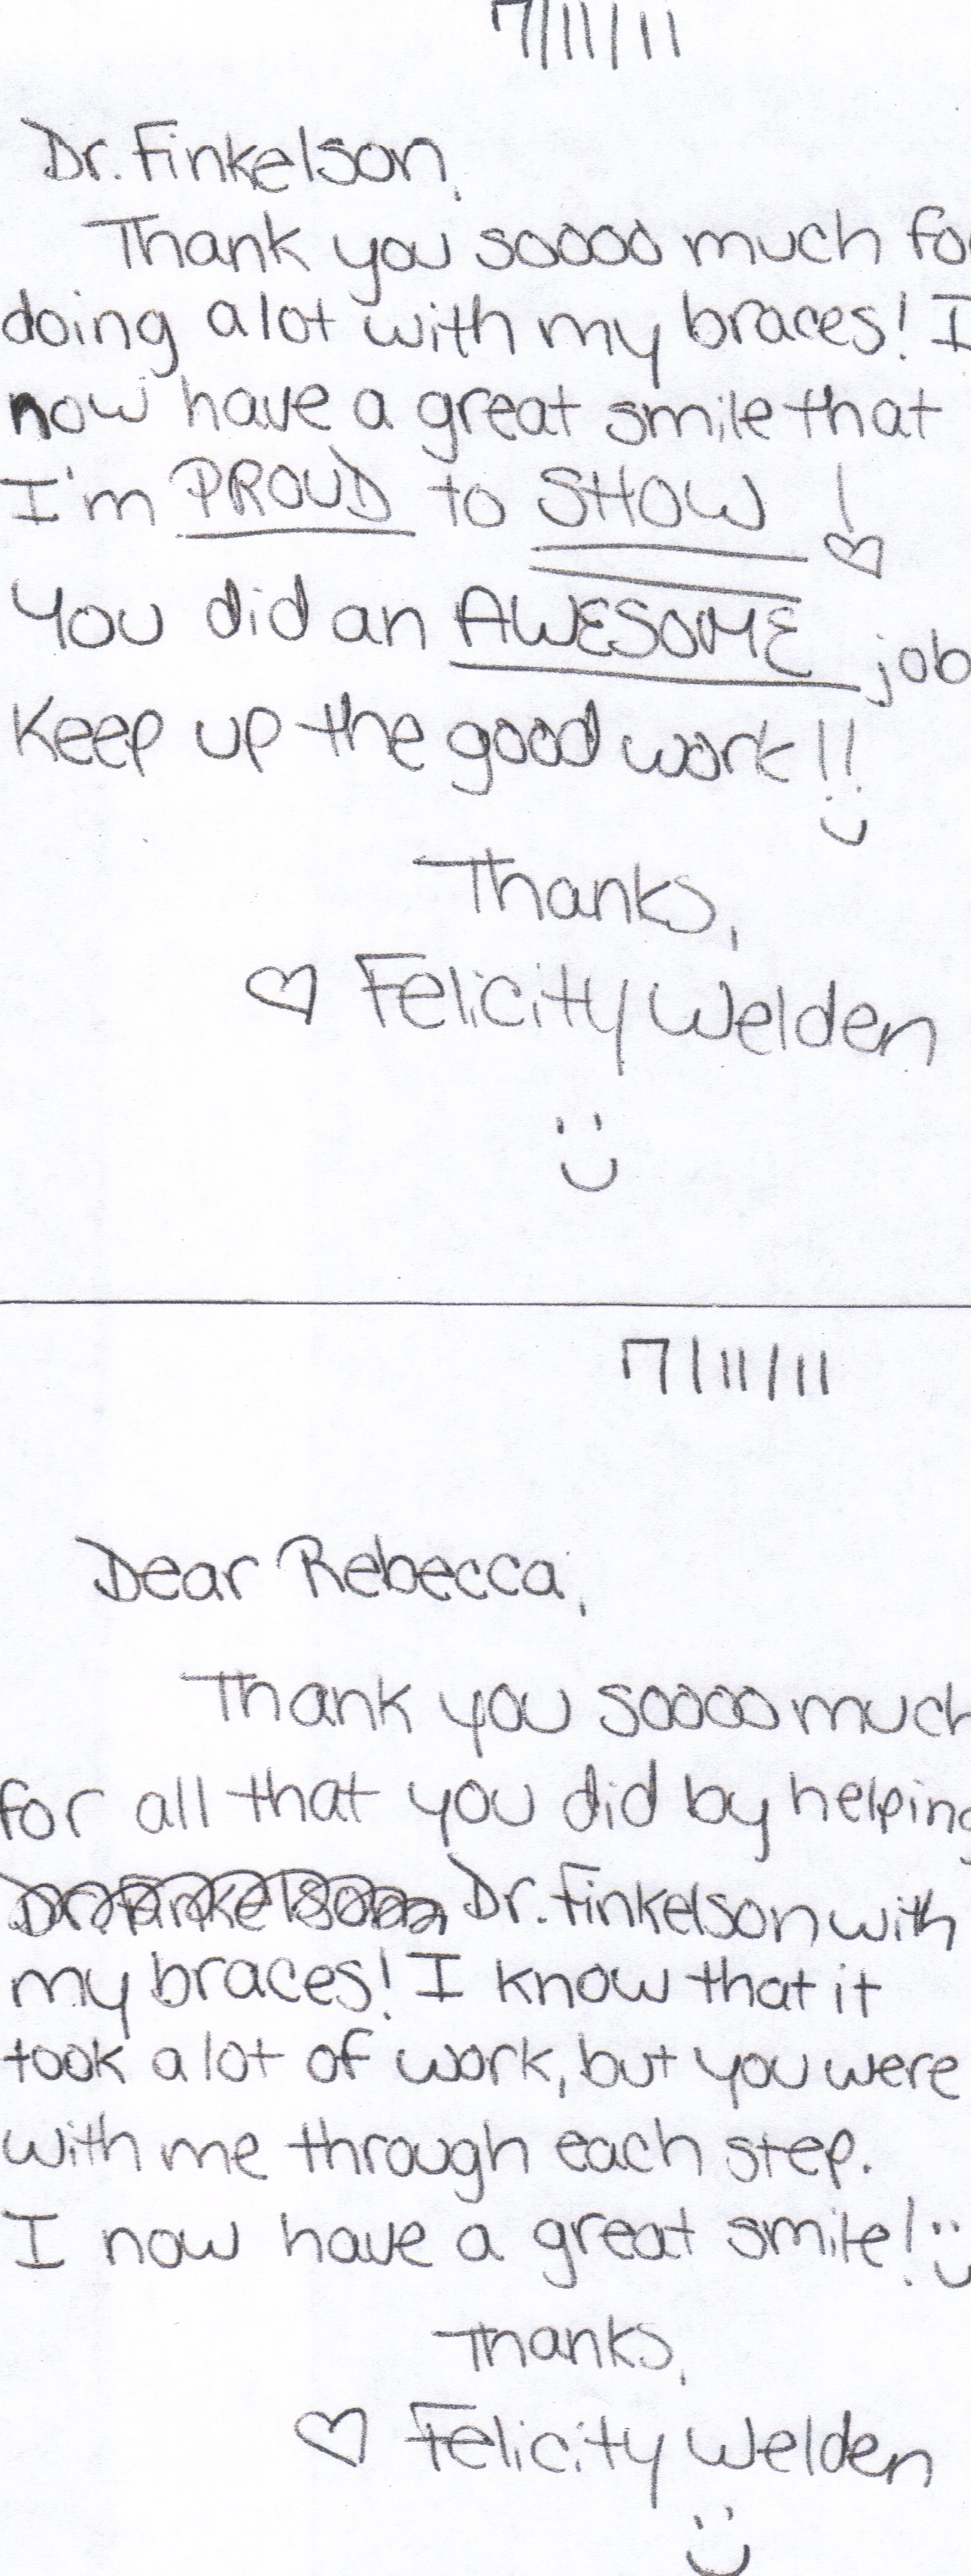 7/11/11
Dr. Finkelson,
Thank you soooo much fo
doing a lot with my braces! I
now have a great smile that
I'm PROUD to SHOW !
You did an AWESOME job
Keep up the good work!!
Thanks,
♡ Felicity Welden
7/11/11
Dear Rebecca,
Thank you soooo much
for all that you did by helping
Dr. Finkelson Dr. Finkelson with
my braces! I know that it
took a lot of work, but you were
with me through each step.
I now have a great smile! :)
Thanks,
♡ Felicity Welden
:)